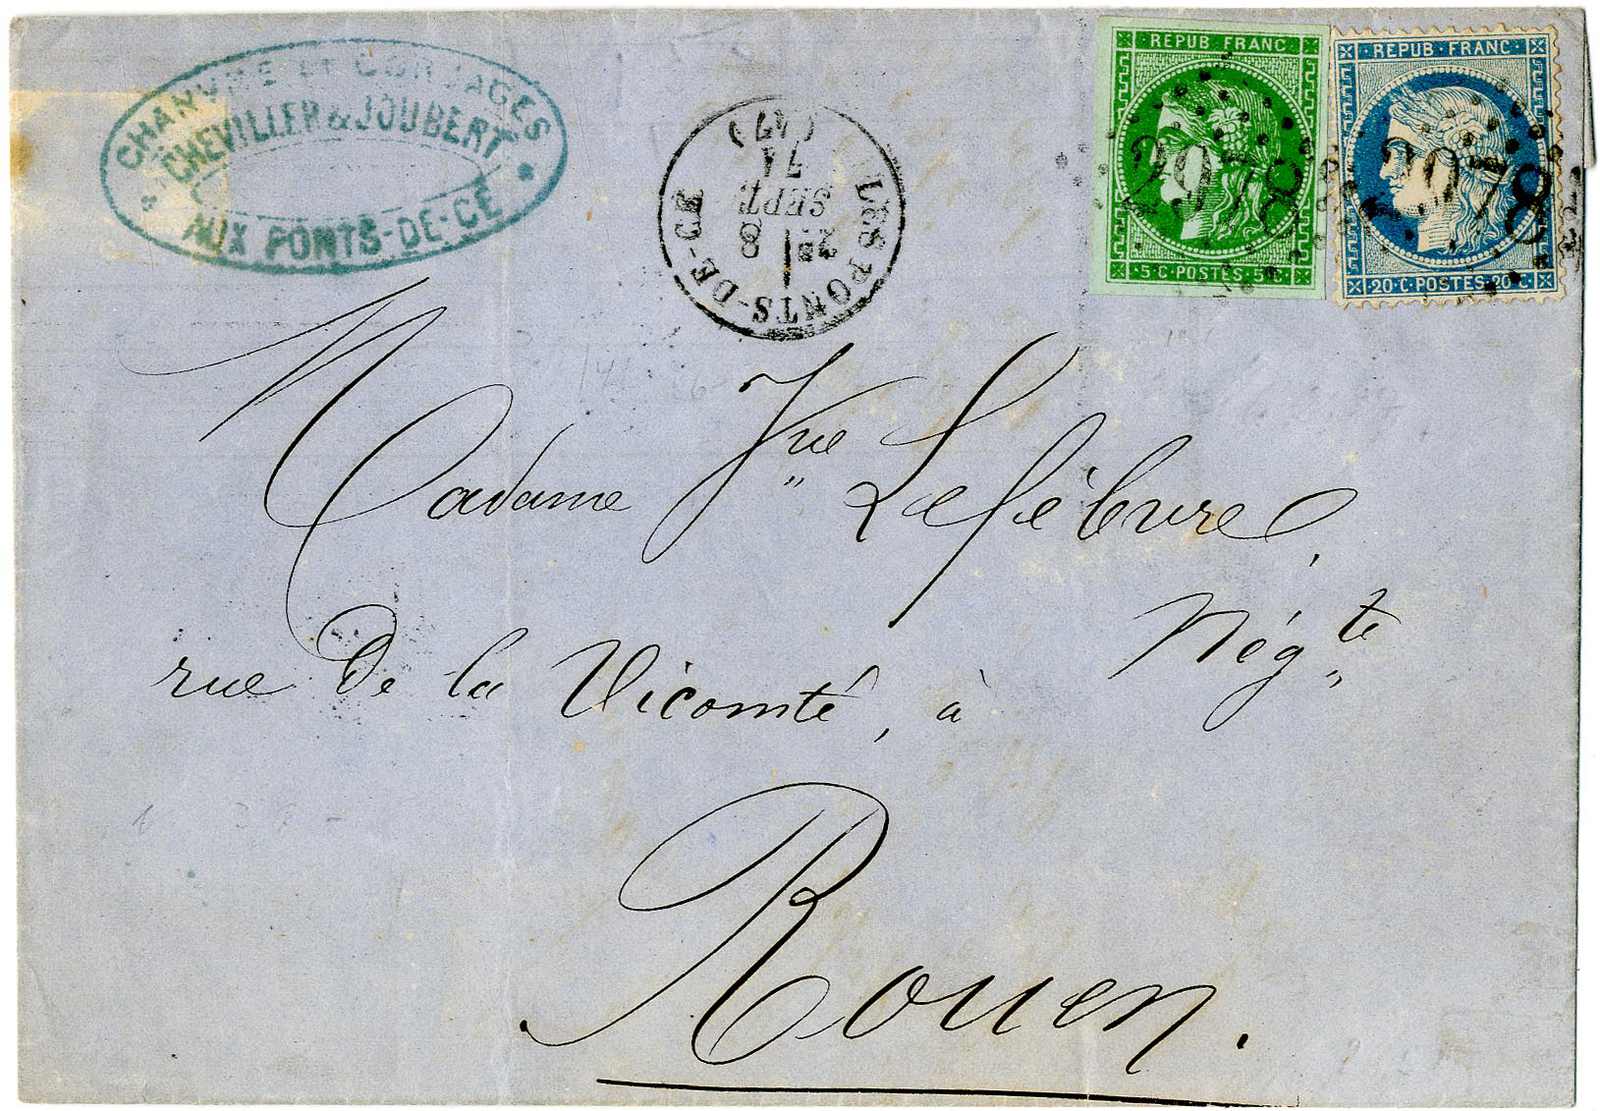 CHANVRE ET CORDAGES
CHEVILLER & JOUBERT
AUX PONTS-DE-CÉ
LES PONTS-DE-CÉ (47)
2E 8 SEPT. 71
REPUB FRANC
5·C·POSTES·5·C
REPUB·FRANC
20·C·POSTES·20·C
2978
2978
Madame Vve Lefèbvre,
Négte
rue De la Vicomté, à
Rouen.